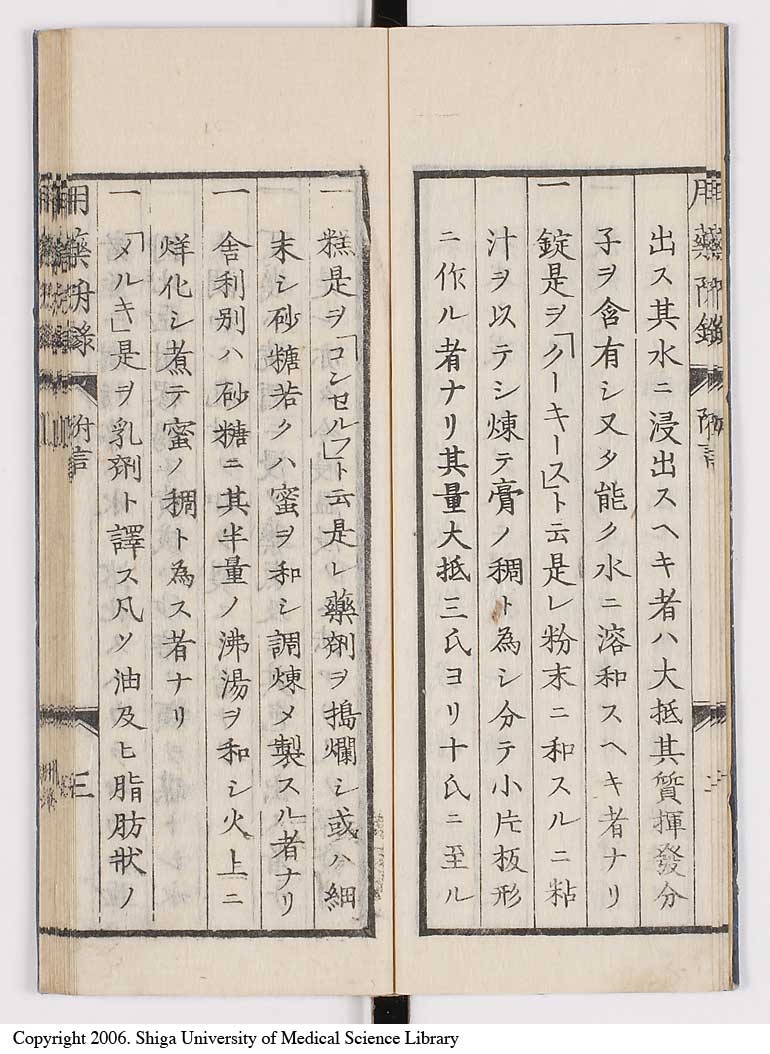 出ス其水ニ浸出スヘキ者ハ大抵其質揮發分
子ヲ含有シ又タ能ク水ニ溶和スヘキ者ナリ
一錠是ヲ「クーキース」ト云是レ粉末ニ和スルニ粘
汁ヲ以テシ煉テ膏ノ稠ト為シ分テ小片板形
ニ作ル者ナリ其量大抵三氏ヨリ十氏ニ至ル
一糕是ヲ「コンセルフ」ト云是レ藥劑ヲ搗爛シ或ハ細
末シ砂糖若クハ蜜ヲ和シ調煉メ製スル者ナリ
一舎利別ハ砂糖ニ其半量ノ沸湯ヲ和シ火上ニ
烊化シ煮テ蜜ノ稠ト為ス者ナリ
一「メルキ」是ヲ乳劑ト譯ス凡ソ油及ヒ脂肪状ノ
附言
三
Copyright 2006. Shiga University of Medical Science Library